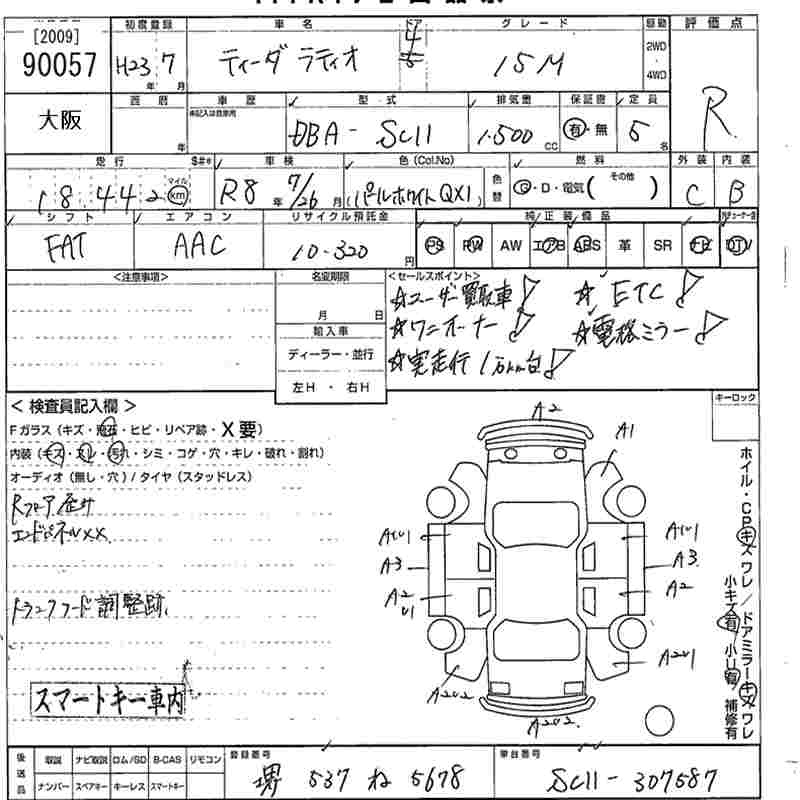 [2009]
90057
大阪
初度登録
H23 7
年 月
車名
ティーダ ラティオ
ドア
4
5
グレード
15M
駆動
2WD
4WD
評価点
R
西暦
年
車歴
未記入は自家用
型式
DBA-SC11
排気量
1.500 CC
保証書
有・無
定員
5 名
走行
18,442
マイル
km
$#*
車検
R8 年 7/26 月
色(Col.No)
(パールホワイト QX1)
色替
燃料
G・D・電気( その他 )
外装
C
内装
B
シフト
FAT
エアコン
AAC
リサイクル預託金
10-320 円
純正装備品
PS PW AW エアB ABS 革 SR ナビ DTV
<注意事項>
名変期限
月 日
輸入車
ディーラー・並行
左H ・ 右H
<セールスポイント>
☆ユーザー買取車! ☆ETC!
☆ワンオーナー! ☆電格ミラー!
☆実走行1万km台!
<検査員記入欄>
Fガラス(キズ・飛石・ヒビ・リペア跡・X要)
内装(キズ・スレ・汚れ・シミ・コゲ・穴・キレ・破れ・割れ)
オーディオ(無し・穴)/タイヤ(スタッドレス)
Rフロア歪サ
エンドパネルXX
トランクフード調整跡
スマートキー車内
キーロック
A2
A1
AU1
A3
A2
U1
A2U2
A2U2
AU1
A3
A2
A2U1
ホイル・CPキズ ワレ/ドアミラーキズ ワレ
小キズ有 小U有 補修有
後送品
取説 ナビ取説 ロム/SD B-CAS リモコン
ナンバー スペアキー キーレス スマートキー
登録番号
堺 537 ね 5678
車台番号
SC11-307587